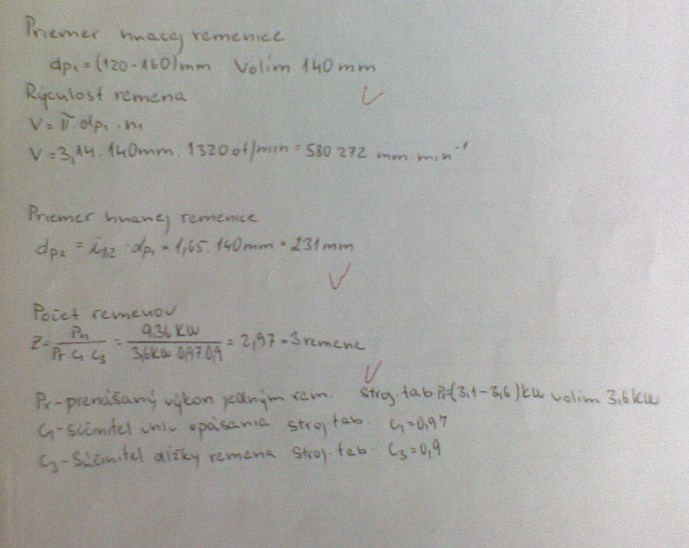 Priemer hnacej remenice
dp₁ = (120-160)mm Volím 140 mm
Rýchlosť remena
V = π . dp₁ . n₁
V = 3,14 . 140mm . 1320 ot/min = 580 272 mm . min⁻¹
Priemer hnanej remenice
dp₂ = i₁,₂ . dp₁ = 1,65 . 140mm = 231mm
Počet remeňov
Z = Pn / Pr . C₁ . C₃ = 9,36 KW / 3,6kW . 0,97 . 0,9 = 2,97 = 3 remene
Pr - prenášaný výkon jedným rem. stroj. tab Pr = (3,1-3,6) kW volím 3,6 kW
C₁ - súčiniteľ opásania stroj. tab. C₁ = 0,97
C₃ - Súčiniteľ dĺžky remena stroj. tab. C₃ = 0,9